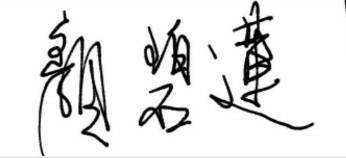 顏碧蓮